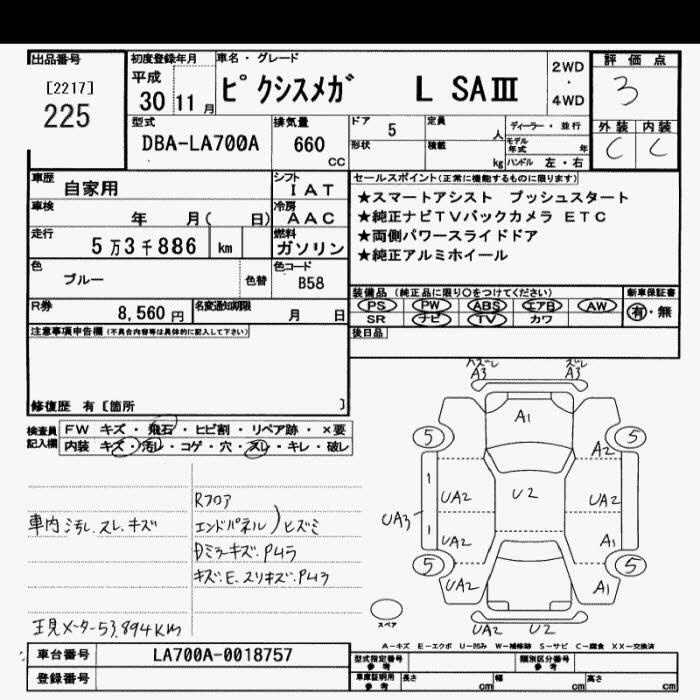 出品番号
[2217]
225
初度登録年月
平成
30 11 月
車名・グレード
ピクシスメガ L SAⅢ
2WD
・
4WD
評価点
3
外装 内装
C C
型式
DBA-LA700A
排気量
660
cc
ドア 5
定員 人
ディーラー・並行
形状
積載 kg
モデル年式 年
ハンドル 左・右
車歴
自家用
シフト
IAT
車検
年 月( 日)
冷房
AAC
走行
5万3千886 km
燃料
ガソリン
色
ブルー
色替
色コード
B58
R券
8,560 円
名変通知期限
月 日
注意事項申告欄(不具合内容等は具体的に記入して下さい)
修復歴 有〔箇所 〕
セールスポイント(正常に機能するものに限ります)
★スマートアシスト プッシュスタート
★純正ナビTVバックカメラ ETC
★両側パワースライドドア
★純正アルミホイール
装備品(純正品に限り○をつけてください)
新車保証書
PS PW ABS エアB AW
SR ナビ TV カワ
有・無
後日品
検査員
記入欄
FW キズ・飛石・ヒビ割・リペア跡・×要
内装 キズ・汚レ・コゲ・穴・スレ・キレ・破レ
車内 汚レ.スレ.キズ
Rフロア
エンドパネル)ヒズミ
Dミラーキズ.P45
キズ.E.スリキズ.P43
現メーター53,894km
スレ
A3
A3
A1
5
5
A2
UA2
U2
UA2
UA3
UA2
A1
5
5
UA2
A1
スペア
UA2
U2
A-キズ E-エクボ U-凹み W-補修跡 S-サビ C-腐食 XX-交換済
車台番号
LA700A-0018757
登録番号
型式指定番号
参考
類別区分番号
参考
車庫証明用
参考
長さ cm
幅 cm
高さ cm